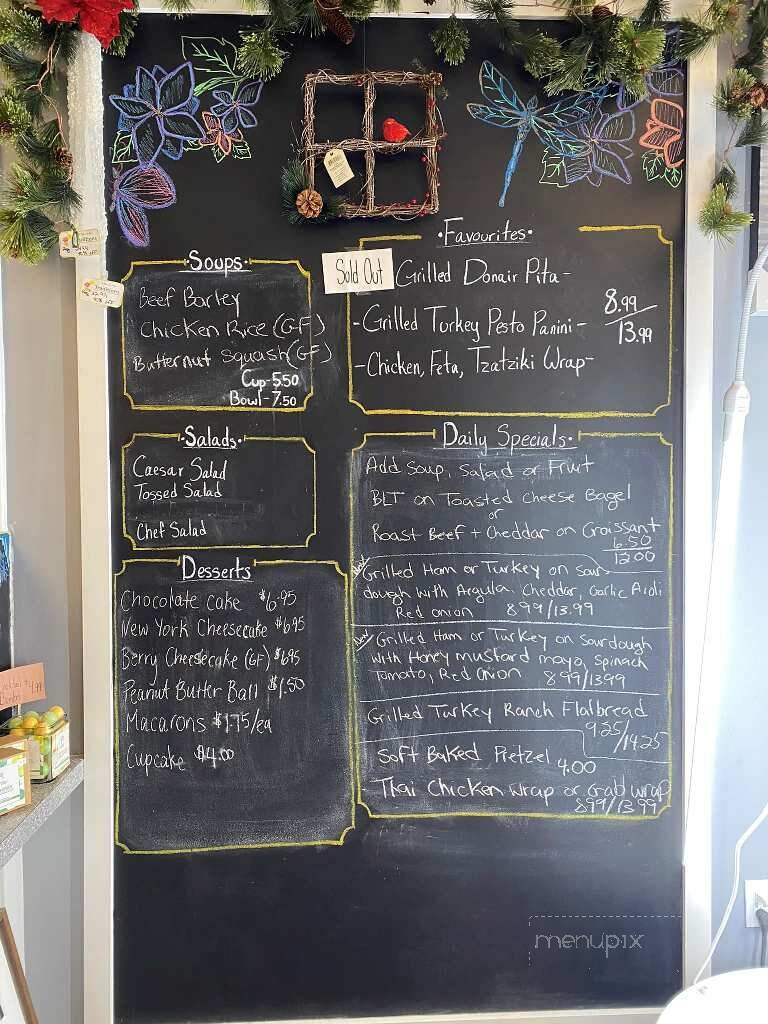 Soups
Beef Barley
Chicken Rice (GF)
Butternut Squash (GF)
Cup-5.50
Bowl-7.50
·Salads·
Caesar Salad
Tossed Salad
Chef Salad
Desserts
Chocolate Cake $6.95
New York Cheesecake $6.95
Berry Cheesecake (GF) $6.95
Peanut Butter Ball $1.50
Macarons $1.75/ea
Cupcake $4.00
·Favourites·
Sold Out
Grilled Donair Pita-
-Grilled Turkey Pesto Panini-
-Chicken, Feta, Tzatziki Wrap-
8.99
13.99
Daily Specials·
Add Soup, Salad or Fruit
BLT on Toasted Cheese Bagel
or
Roast Beef + Cheddar on Croissant
6.50
12.00
New
Grilled Ham or Turkey on Sour
dough with Argula. Cheddar, Garlic Aioli
Red onion 8.99/13.99
New
Grilled Ham or Turkey on Sourdough
with Honey mustard mayo, Spinach
Tomato, Red Onion 8.99/13.99
Grilled Turkey Ranch Flatbread
9.25/14.25
Soft Baked Pretzel 4.00
- Thai Chicken wrap or Crab wrap
8.99/13.99
menupix